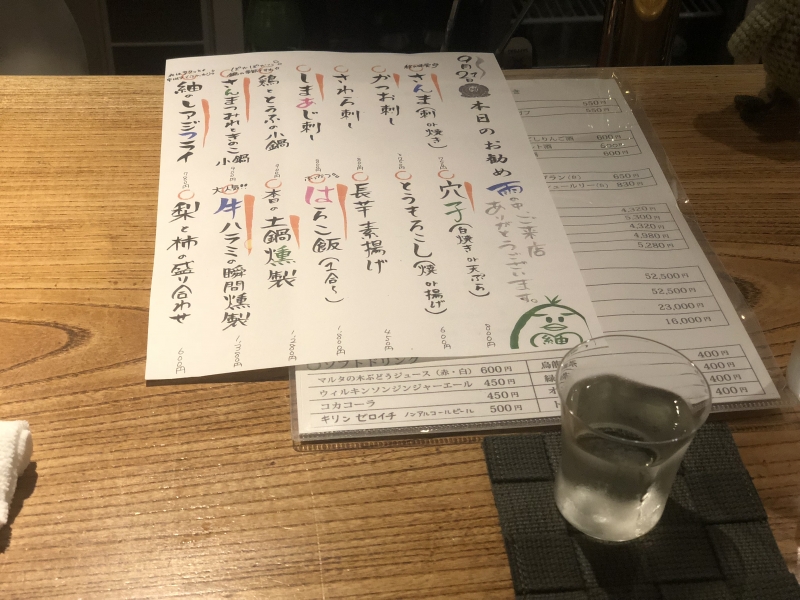 9月27日
本日のお勧め
雨の中ご来店
ありがとうございます。
さんま(刺or焼き)
かつお刺し
さわら刺し
しまあじ刺し
鶏ととうふの小鍋
さんまつみれときのこ小鍋
紬のレアアジフライ
780円
穴子(白焼きor天ぷら)
800円
とうもろこし(焼or揚げ)
600円
長芋素揚げ
450円
はらこ飯(1合〜)
1,800円
本日の土鍋燻製
1,280円
牛ハラミの瞬間燻製
1,380円
梨と柿の盛り合わせ
600円
紬
550円
600円
600円
650円
830円
4,320円
5,300円
4,320円
4,980円
5,280円
52,500円
52,500円
23,000円
16,000円
ソフトドリンク
マルタの木ぶどうジュース(赤・白) 600円
ウィルキンソンジンジャーエール 450円
コカコーラ 450円
キリン ゼロイチ ノンアルコールビール 500円
400円
400円
400円
400円